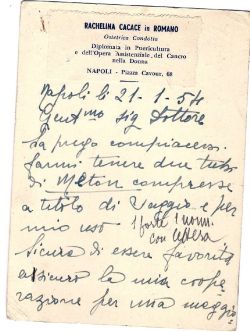 RACHELINA CACACE in ROMANO
Ostetrica Condotta
Diplomata in Puericultura
e dell'Opera Assistenziale del Cancro
nella Donna
NAPOLI - Piazza Cavour, 68
Napoli lì 21-1-54
Gent/mo sig Dottore
La prego compiacersi
farmi tenere due tubi
di Meton compresse
a titolo di saggio e per
mio uso 1 forte 1 norm.
con
Sicura di essere favorita
assicuro la mia coope
razione per una maggio